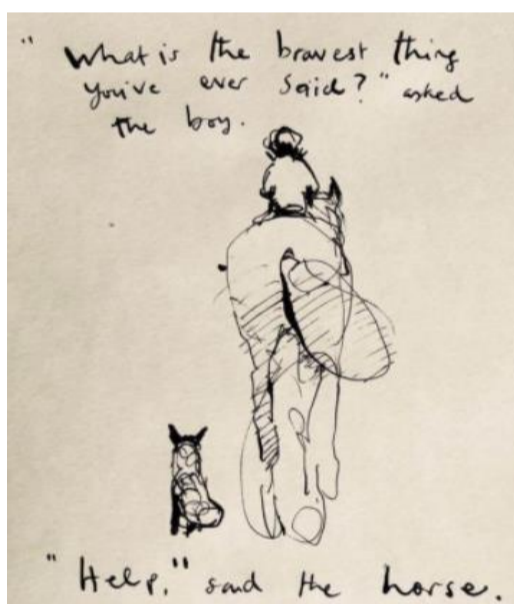 "What is the bravest thing
you've ever said?" asked
the boy.
"Help," said the horse.